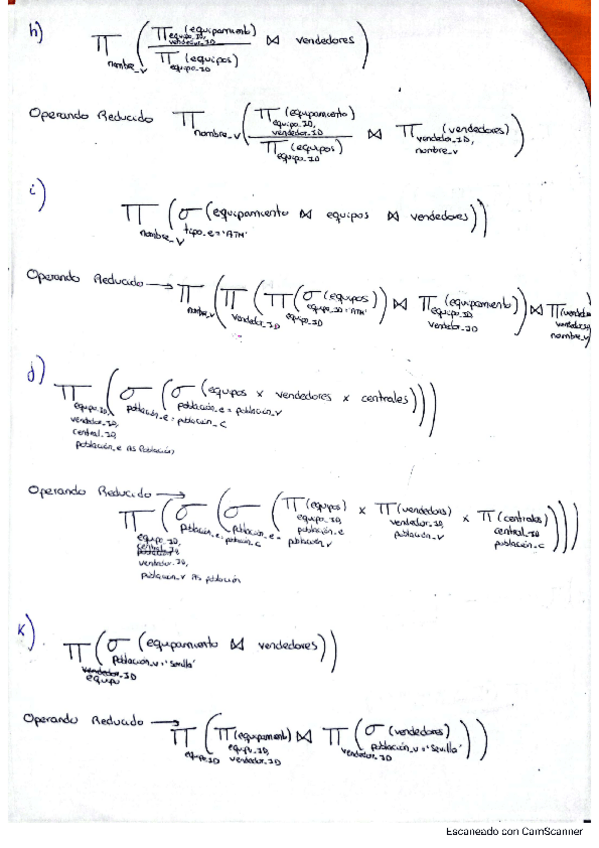 h) π nombre_v ( π equipo_ID, vendedor_ID (equipamiento) / π equipo_ID (equipos) ⋈ vendedores )
Operando Reducido π nombre_v ( π equipo_ID, vendedor_ID (equipamiento) / π equipo_ID (equipos) ⋈ π vendedor_ID, nombre_v (vendedores) )
i) π nombre_v ( σ tipo_e='ATM' (equipamiento ⋈ equipos ⋈ vendedores))
Operando Reducido → π nombre_v ( π vendedor_ID ( π equipo_ID ( σ equipo_ID='ATM' (equipos)) ⋈ π equipo_ID vendedor_ID (equipamiento)) ⋈ π nombre_v
j) π equipo_ID, vendedor_ID, central_ID, población_e AS Población ( σ población_e = población_c ( σ población_e = población_v (equipos x vendedores x centrales)))
Operando Reducido → π equipo_ID, central_ID, vendedor_ID, población_v AS población ( σ población_e, población_c ( σ población_e = población_v ( π equipo_ID, población_e (equipos) x π vendedor_ID, población_v (vendedores) x π central_ID población_c (centrales))))
K) π equipo ( σ población_v='Sevilla' (equipamiento ⋈ vendedores))
Operando Reducido → π equipo_ID ( π equipo_ID, vendedor_ID (equipamiento) ⋈ π vendedor_ID ( σ población_v='Sevilla' (vendedores)))
Escaneado con CamScanner